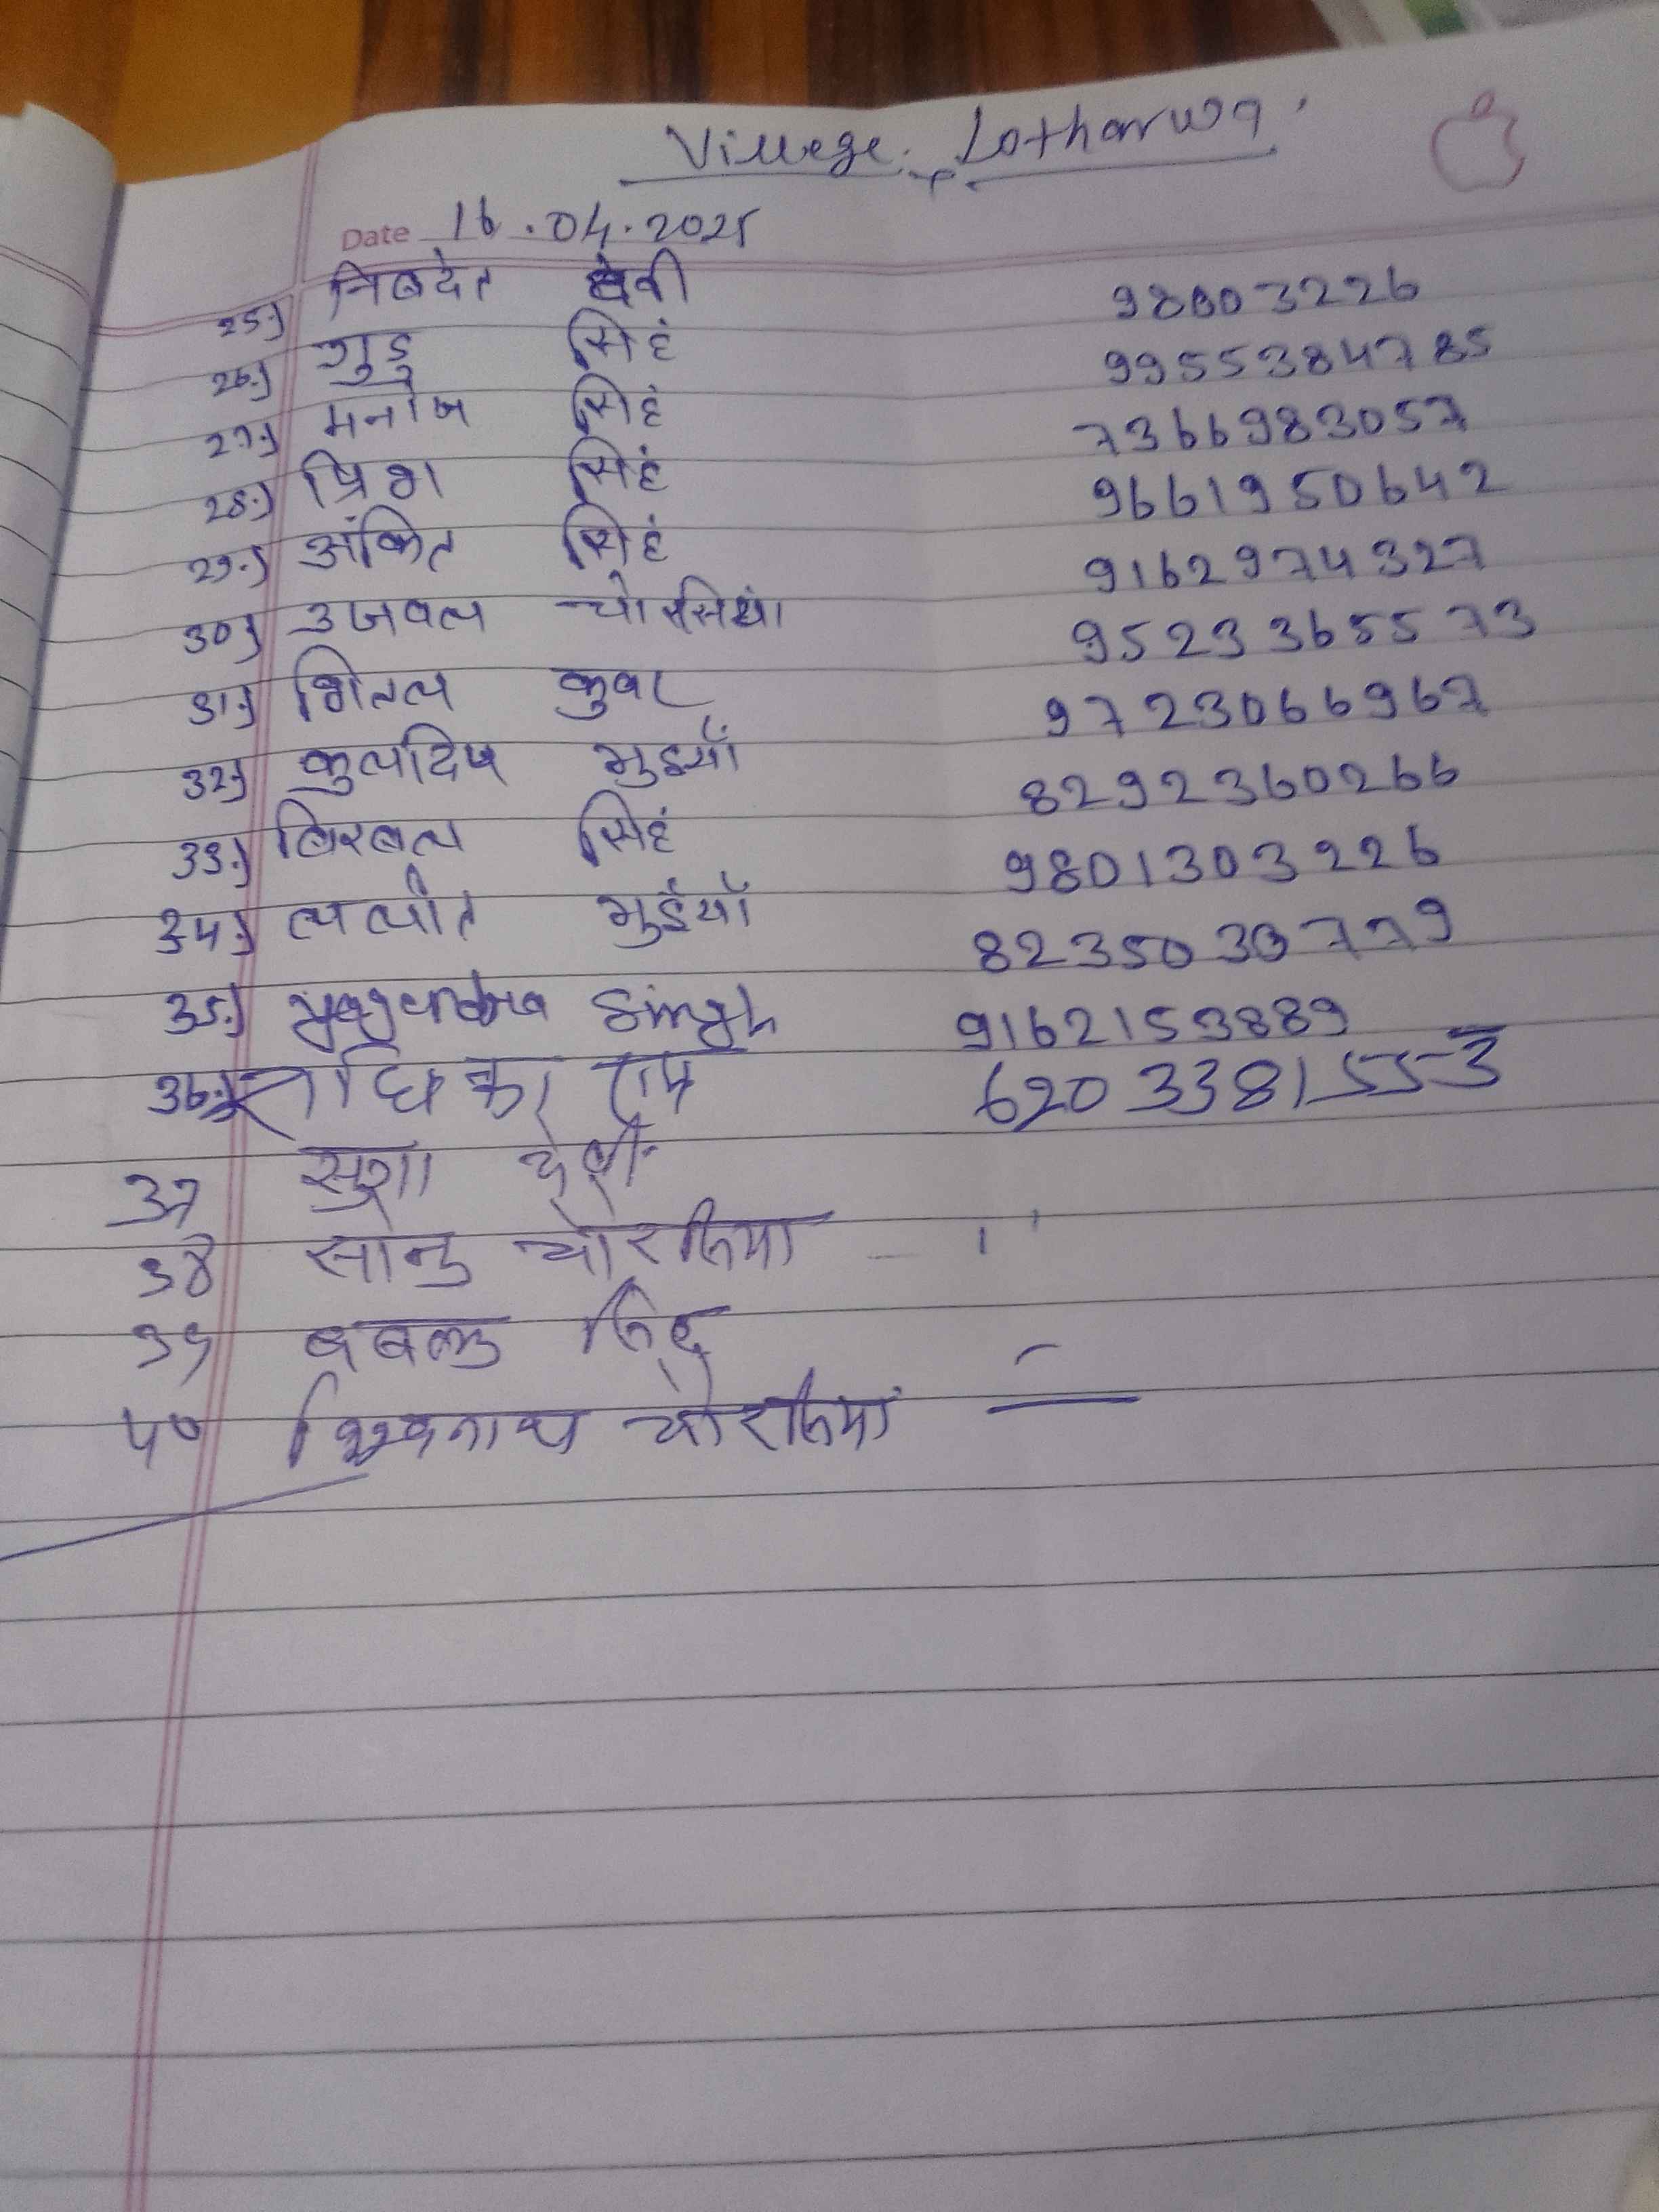 Villege. Lotharwa
Date 16.04.2025
25.) निबदेत देवी 98003226
26.) गुडु सिहं 9955384785
27.) मनोज सिहं 7366983057
28.) प्रिंश सिहं 9661950642
29.) अंकित सिहं 9162974327
30.) उजवल चोरसिया 9523365573
31.) शितल कुवर 9723066967
32.) कुलदिप भुइयाँ 8292360266
33.) बिरबल सिहं 9801303226
34.) ललीत भुईयाँ 8235030779
35.) Singh 9162153889
36.) राधिका राम 6203381553
37 देवी
38 सोनु चोरसिया - ''
39 बबलु सिंह -
40 विश्वनाथ चोरसिया -